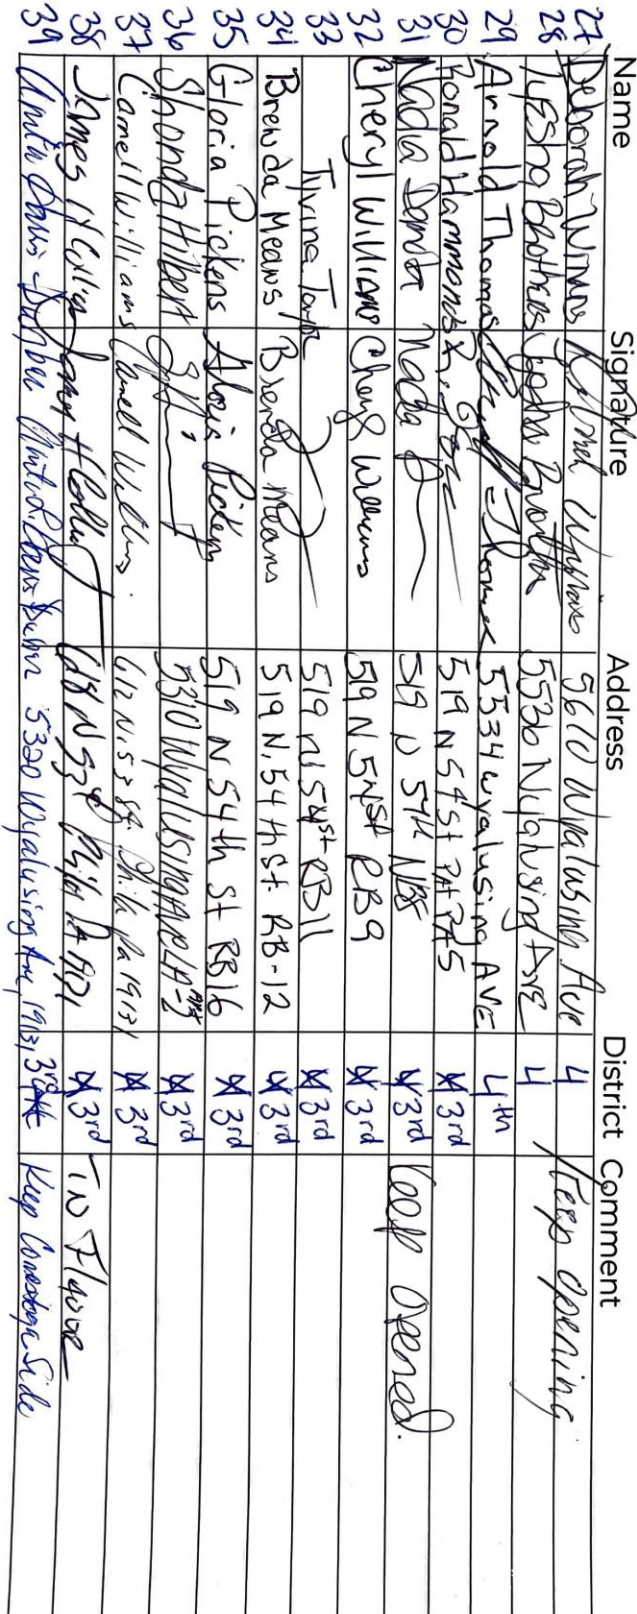 Name Signature Address District Comment
27 Deborah Winns 5610 Wyalusing Ave 4 Keep opening
28 Iyesha Brothers Iyesha Brothers 5526 Wyalusing Ave 4
29 Arnold Thomas Thomas 5534 Wyalusing AVE 4th
30 Ronald Hammonds 519 N 54 St 3rd
31 Nadia Nadia 519 N 54th 3rd Keep Opened.
32 Cheryl Williams Cheryl Williams 519 N 54 St RB9 3rd
33 Tyrina Taylor 519 N 54 St RB11 3rd
34 Brenda Means Brenda Means 519 N. 54th St RB-12 3rd
35 Gloria Pickens Gloria Pickens 519 N 54th St RB16 3rd
36 Shonda Hilbert 5310 Wyalusing Ave Apt 3rd
37 Carnell Williams Carnell Williams 612 N. 53 St. Phila Pa 19131 3rd
38 James H Collins James H Collins N 53rd Phila Pa 19131 3rd IN Flavor
39 Davis-Dunbar 5320 Wyalusing Ave, 19131, 3rd Keep Conestoga Side